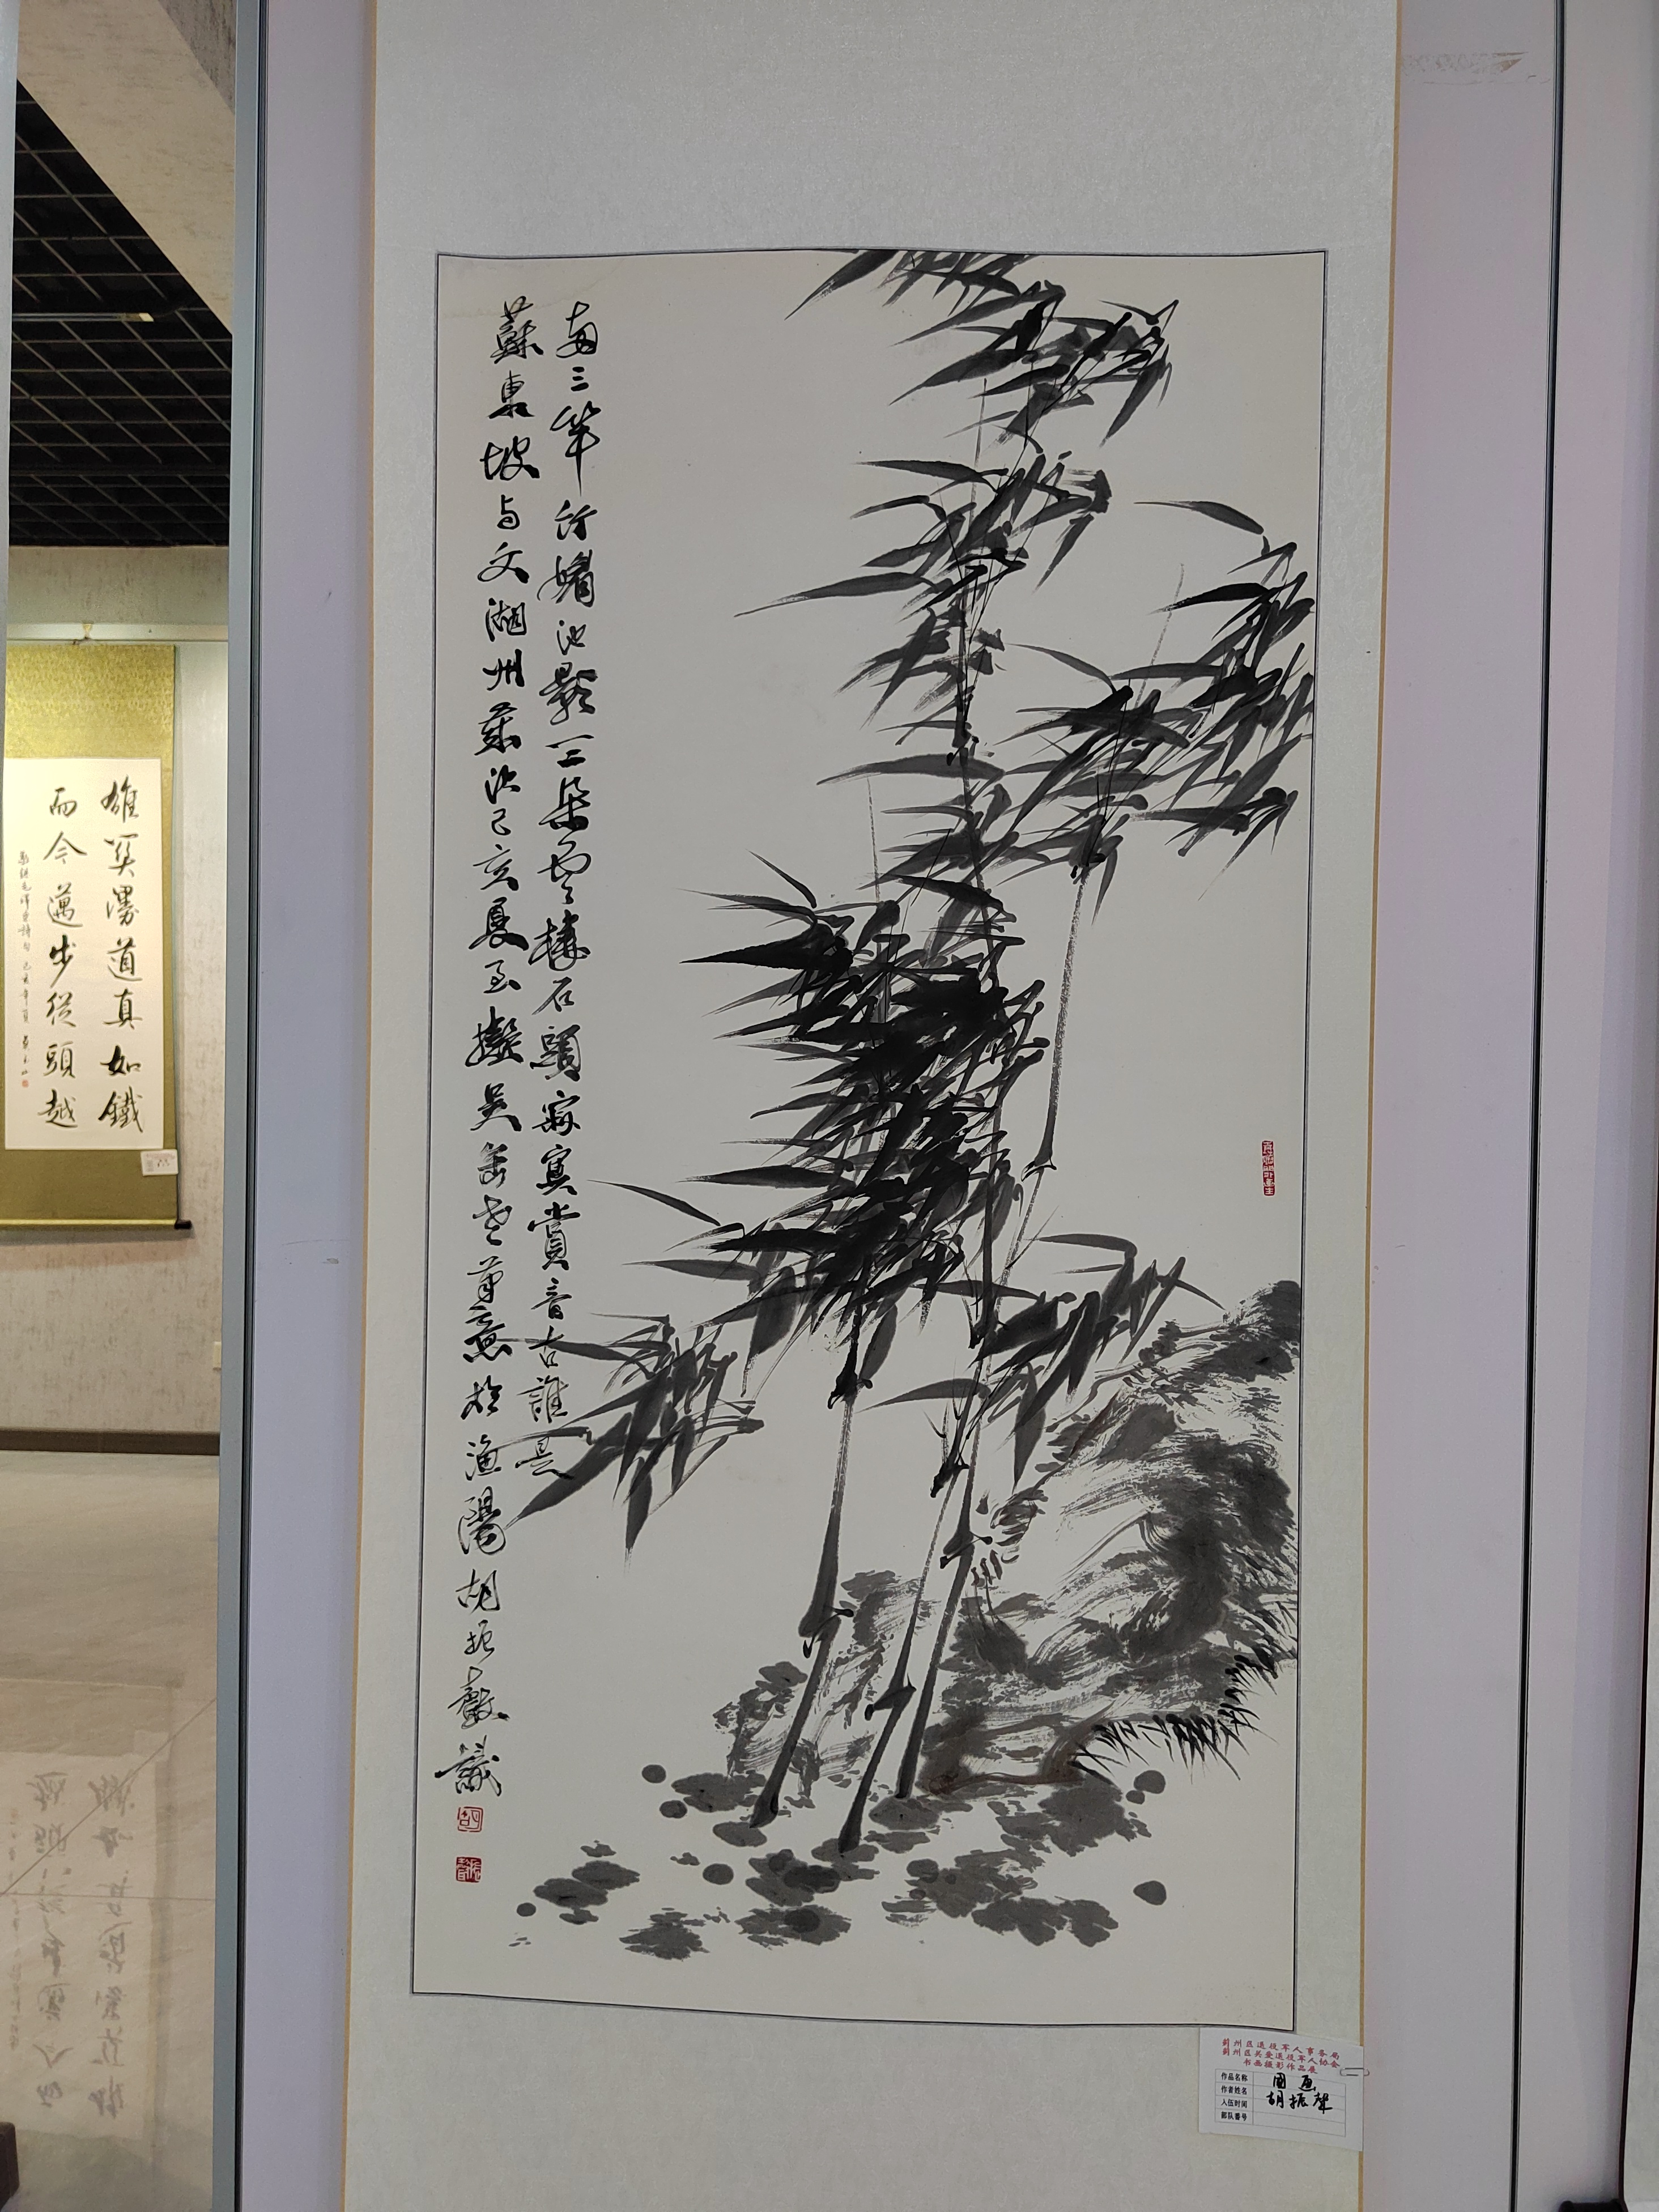 两三竿竹媚池影一二朵雲棲石頭寂寞賞音古誰是
蘇東坡与文湖州歲次己亥夏至擬吴缶老筆意於漁陽胡振聲識
雄関漫道真如鐵
而今邁步從頭越
蓟州区退役军人事务局
蓟州区关爱退役军人协会
书画摄影作品展
作品名称 國画
作者姓名 胡振聲
入伍时间
部队番号